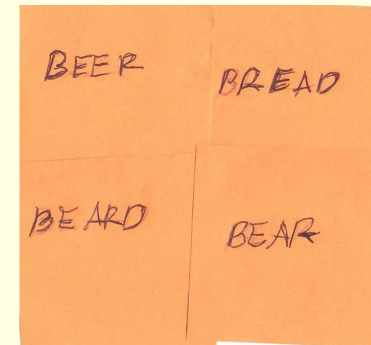 BEER
BREAD
BEARD
BEAR